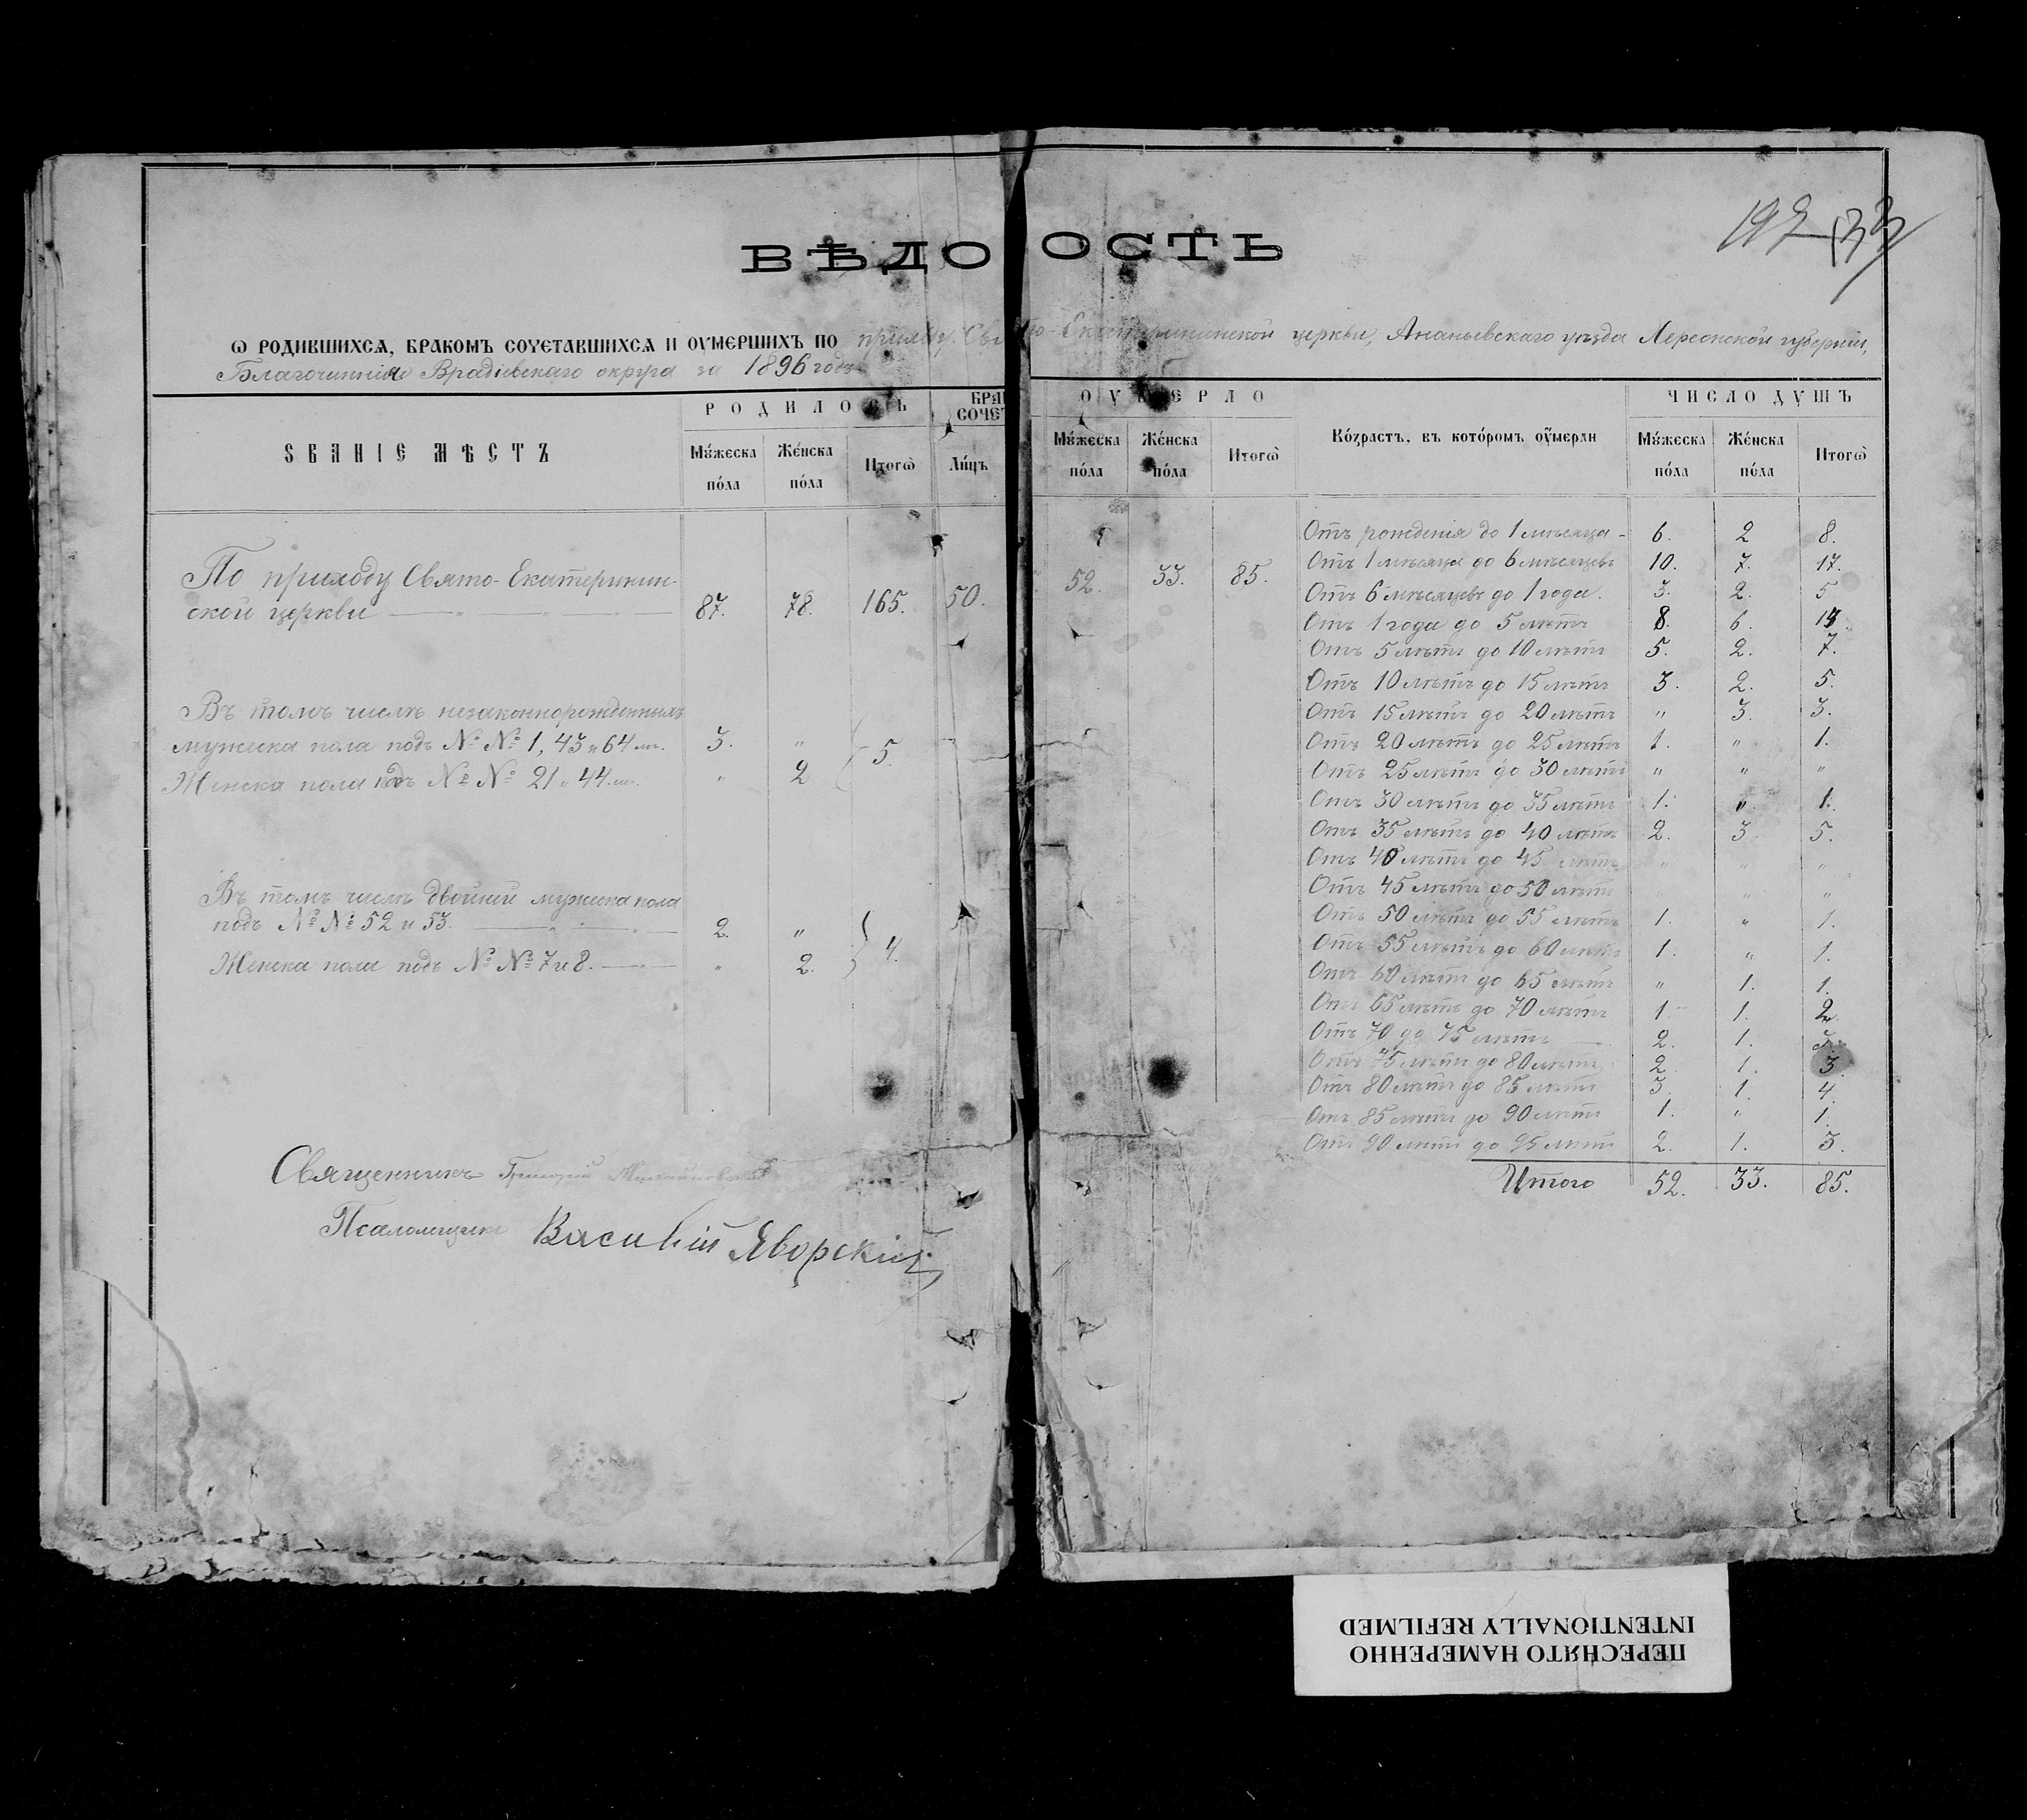 ВѢДО ОСТЬ
ѡ родившихсѧ, бракомъ соуетавшихсѧ и оумершихъ по приходу Свято-Екатерининской церкви, Ананьевскаго уѣзда Херсонской губерніи,
Благочиннія Врадіевскаго округа за 1896 годъ
ЅВАНІЕ МѢСТЪ
РОДИЛОСЬ
Мꙋжеска пола
Женска пола
Итогѡ
БРА
СОЧЕ
Лицъ
По приходу Свято-Екатеринин-
ской церкви 87. 78. 165. 50.
Въ томъ числѣ незаконнорожденныхъ
мужеска пола подъ №№ 1, 43 и 64 3. "
Женска пола подъ №№ 21 и 44 " 2
5.
Въ томъ числѣ двойни мужеска пола
подъ №№ 52 и 53. 2. "
Женска пола подъ №№ 7 и 8. " 2.
4.
Священникъ Григорій
Псаломщикъ Василій Яворскій
192
ОУМЕРЛО
Мꙋжеска пола
Женска пола
Итогѡ
Возрастъ, въ которомъ оумерли
ЧИСЛО ДУШЪ
Мꙋжеска пола
Женска пола
Итогѡ
52. 33. 85.
Отъ рожденія до 1 мѣсяца - 6. 2 8.
Отъ 1 мѣсяца до 6 мѣсяцевъ 10. 7. 17.
Отъ 6 мѣсяцевъ до 1 года. 3. 2. 5
Отъ 1 года до 5 лѣтъ 8. 6. 14
Отъ 5 лѣтъ до 10 лѣтъ 5. 2. 7.
Отъ 10 лѣтъ до 15 лѣтъ 3. 2. 5.
Отъ 15 лѣтъ до 20 лѣтъ " 3. 3.
Отъ 20 лѣтъ до 25 лѣтъ 1. " 1.
Отъ 25 лѣтъ до 30 лѣтъ " " "
Отъ 30 лѣтъ до 35 лѣтъ 1. " 1.
Отъ 35 лѣтъ до 40 лѣтъ 2. 3. 5.
Отъ 40 лѣтъ до 45 лѣтъ " " "
Отъ 45 лѣтъ до 50 лѣтъ " "
Отъ 50 лѣтъ до 55 лѣтъ 1. " 1.
Отъ 55 лѣтъ до 60 лѣтъ 1. " 1.
Отъ 60 лѣтъ до 65 лѣтъ " 1. 1.
Отъ 65 лѣтъ до 70 лѣтъ 1. 1. 2.
Отъ 70 до 75 лѣтъ 2. 1. 3.
Отъ 75 лѣтъ до 80 лѣтъ 2. 1. 3.
Отъ 80 лѣтъ до 85 лѣтъ 3. 1. 4.
Отъ 85 лѣтъ до 90 лѣтъ 1. " 1.
Отъ 90 лѣтъ до 95 лѣтъ 2. 1. 3.
Итого 52. 33. 85.
ПЕРЕСНЯТО НАМЕРЕННО
INTENTIONALLY REFILMED